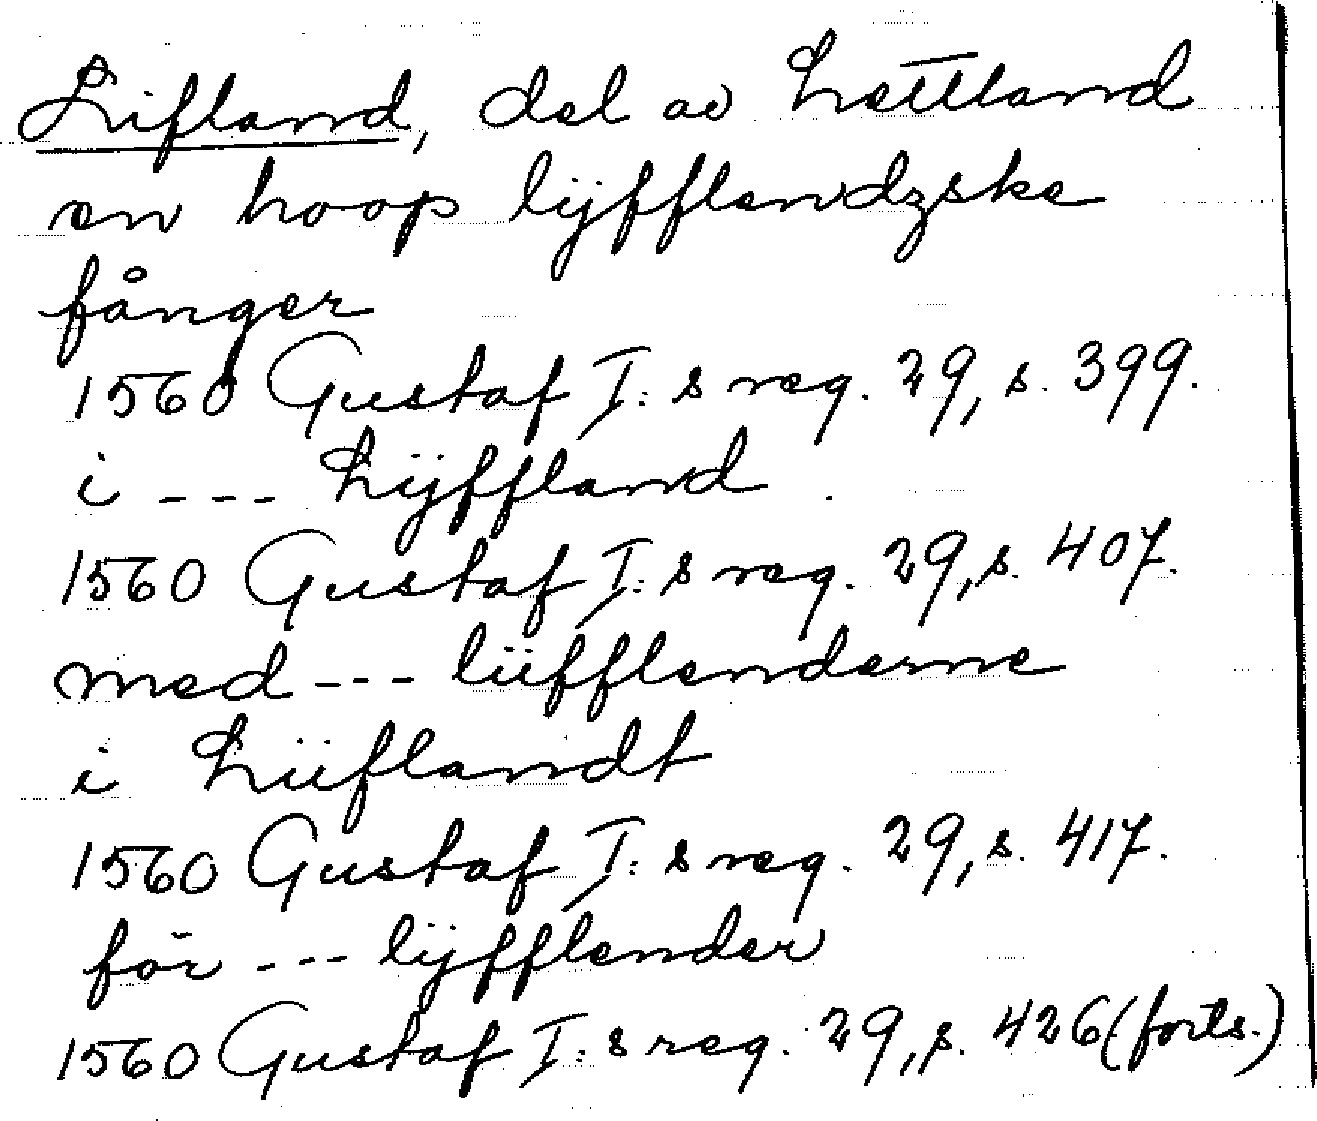 Lifland, del av Lettland
en hoop lijfflendzske
fånger
1560 Gustaf I:s reg. 29, s. 399.
i --- Lijffland
1560 Gustaf I:s reg. 29, s. 407.
med --- liifflenderne
i Liiflandt
1560 Gustaf I:s reg. 29, s. 417.
för --- lijfflender
1560 Gustaf I:s reg. 29, s. 426 (forts.)